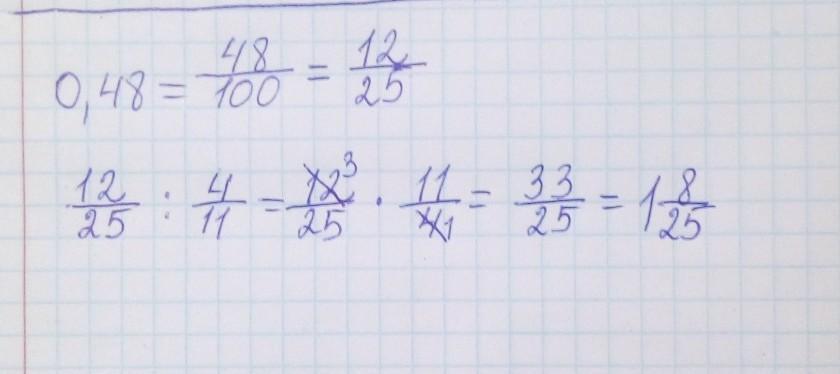 0,48 = 48/100 = 12/25
12/25 : 4/11 = 12 3/25 · 11/4 1 = 33/25 = 1 8/25